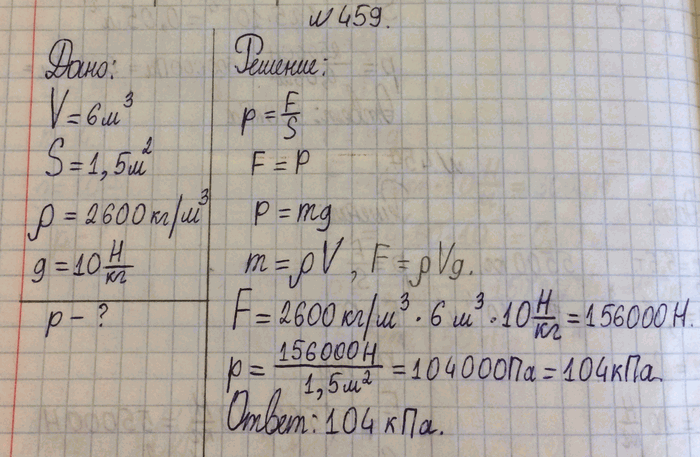 №459.
Дано:
V = 6 м³
S = 1,5 м²
ρ = 2600 кг/м³
g = 10 Н/кг
p – ?
Решение:
p = F/S
F = P
P = mg
m = ρV, F = ρVg.
F = 2600 кг/м³ · 6 м³ · 10 Н/кг = 156000 Н.
p = 156000 Н / 1,5 м² = 104000 Па = 104 кПа.
Ответ: 104 кПа.